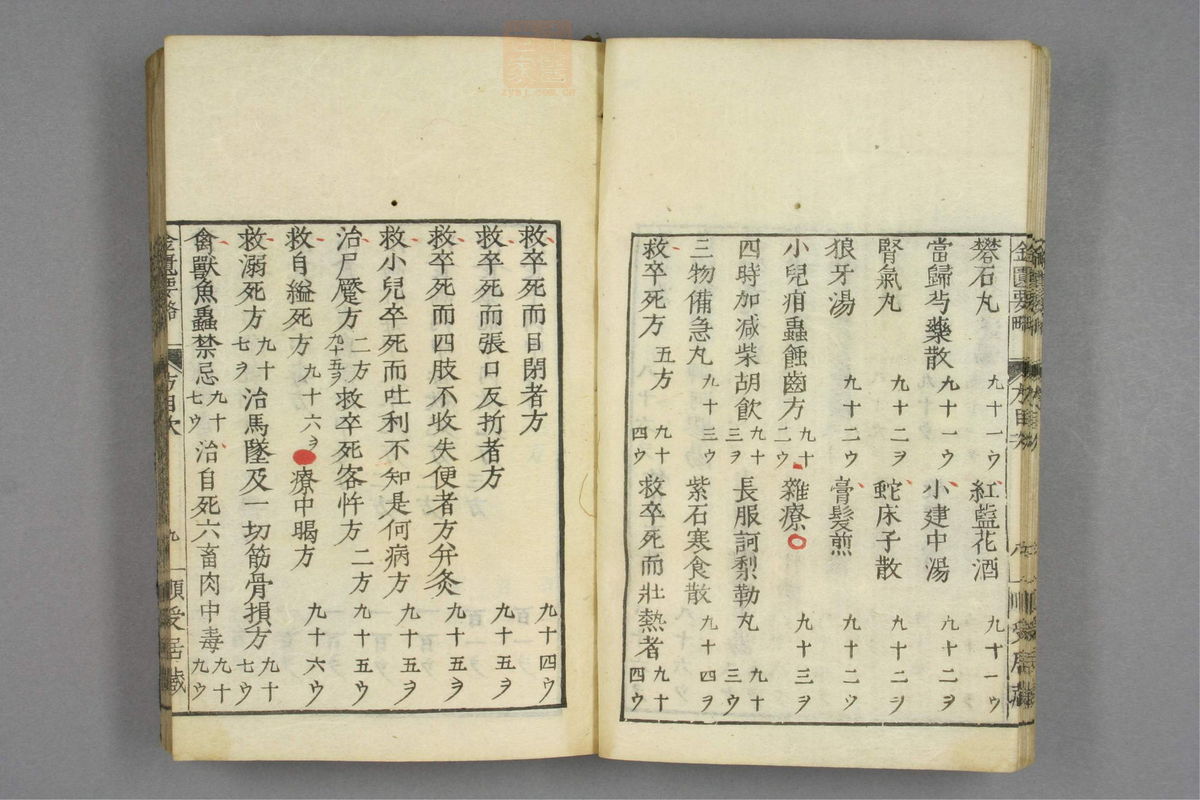 礬石丸 九十一ウ 紅藍花酒 九十一ウ
當歸芍藥散 九十一ウ 小建中湯 九十二ヲ
腎氣丸 九十二ヲ 蛇床子散 九十二ヲ
狼牙湯 九十二ウ 膏髮煎 九十二ウ
小兒疳蟲蝕齒方 九十二ウ 雜療 九十三ヲ
四時加減柴胡飲 九十三ヲ 長服訶梨勒丸 九十三ウ
三物備急丸 九十三ウ 紫石寒食散 九十四ヲ
救卒死方 五方 九十四ウ 救卒死而壯熱者 九十四ウ
金匱要略 方目次
救卒死而目閉者方 九十四ウ
救卒死而張口反折者方 九十五ヲ
救卒死而四肢不收失便者方弁灸 九十五ヲ
救小兒卒死而吐利不知是何病方 九十五ヲ
治尸蹷方 二方 九十五ヲ 救卒死客忤方 二方 九十五ウ
救自縊死方 九十六ヲ 療中暍方 九十六ウ
救溺死方 九十七ヲ 治馬墜及一切筋骨損方 九十七ウ
禽獸魚蟲禁忌 九十七ウ 治自死六畜肉中毒 九十九ウ
金匱要略 方目次 九 順受居藏